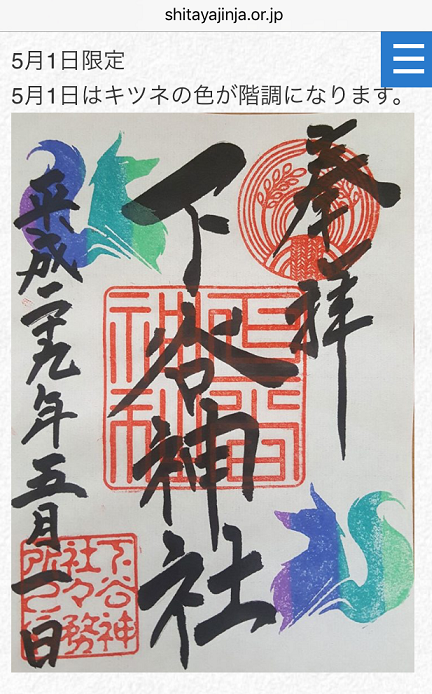 shitayajinja.or.jp
5月1日限定
5月1日はキツネの色が階調になります。
奉拝
下谷神社
平成二十九年五月一日
下谷神
社々務
所之印